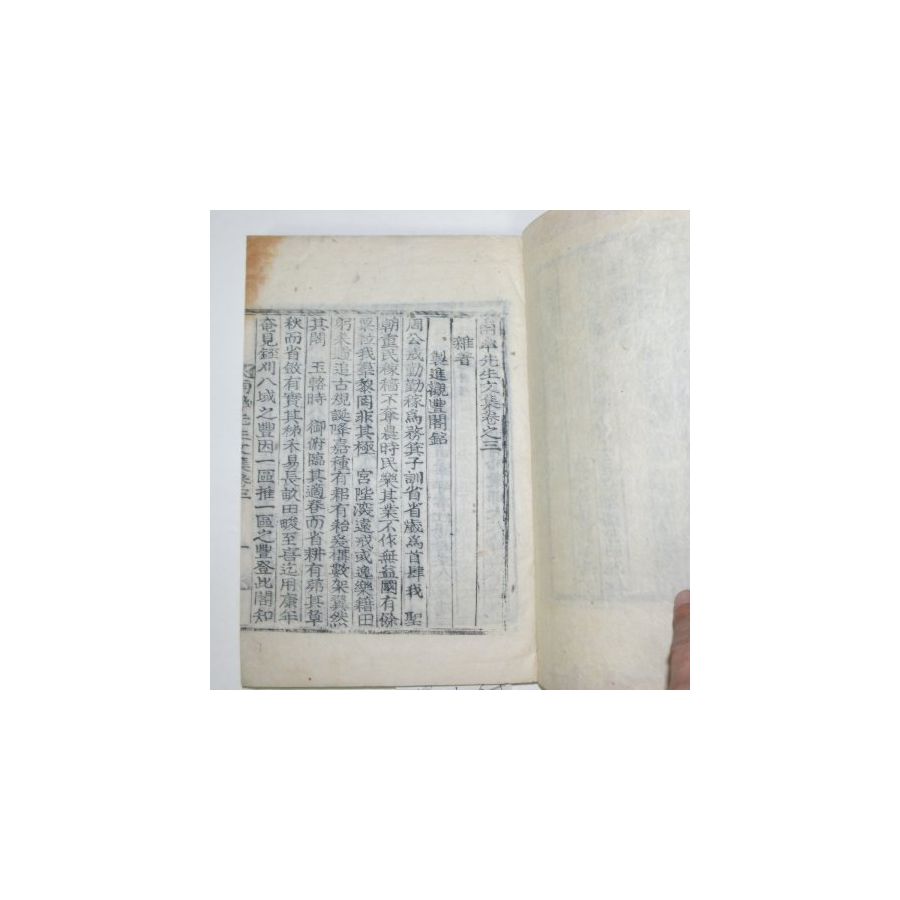 先生文集卷之三
雜著
製進觀豐閣銘
周公戒勤勤稼爲務箕子訓省省歲爲首肆我 聖
朝重民稼穡不奪農時民樂其業不作無益國有餘
粟泣我羣黎罔非其極 宮陛淺遠戒或逸樂籍田
躬耒適追古規誕降嘉種有秠有秬爰搆數架翼然
其閣 玉輅時御俯臨其適春而省耕有苐其草
秋而省斂有實其稊禾易長畝田畯至喜迄用康年
奄見銍刈八域之豐因一區推一區之豐登此閣知
先生文集卷三